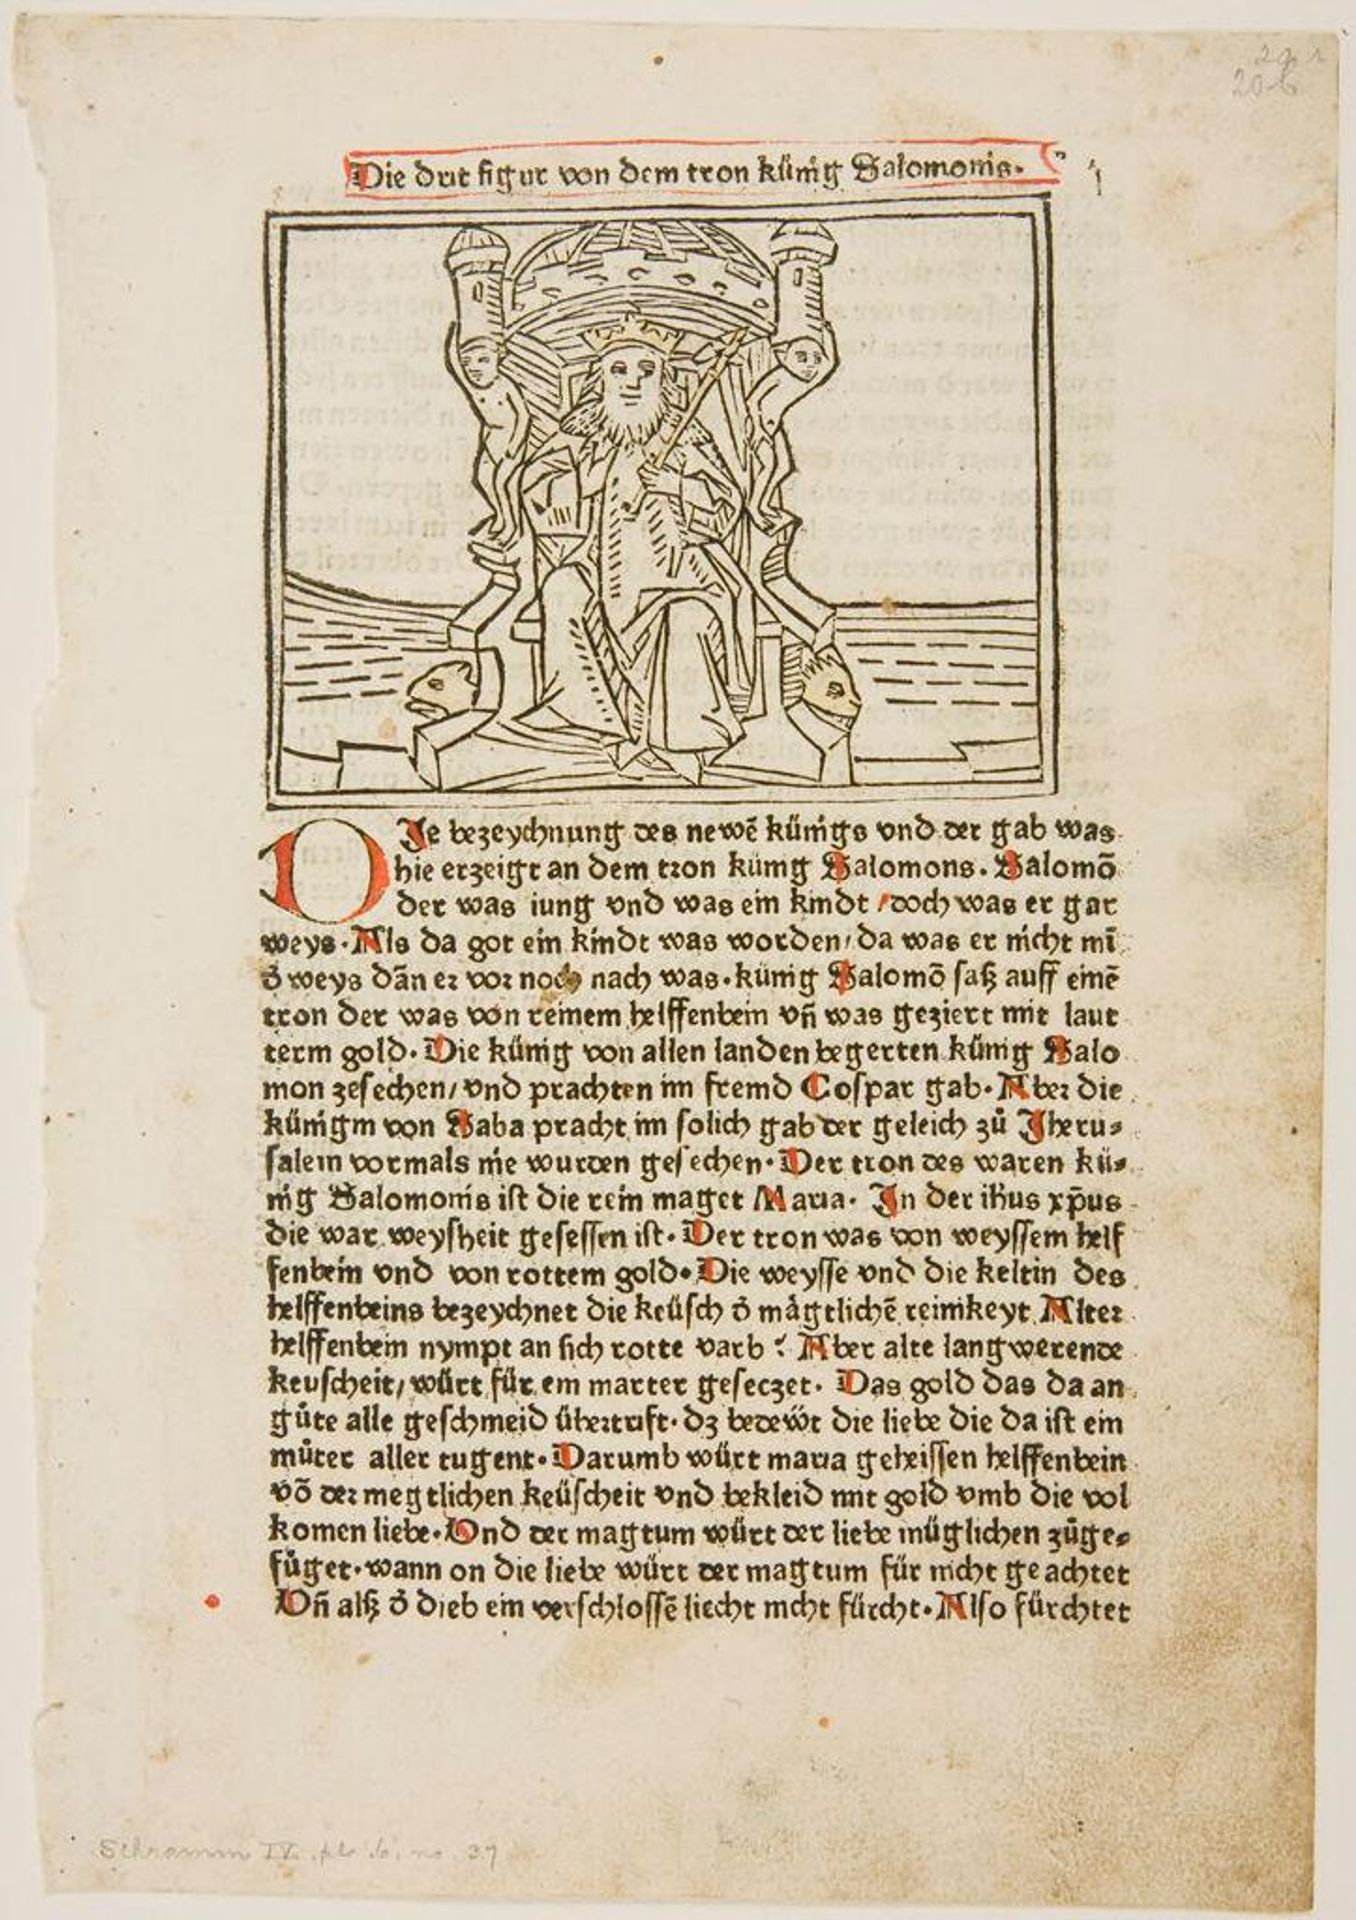 Die drit figur von dem tron künig Salomonis.
DIe bezeychnung des newē künigs vnd der gab was
hie erzeigt an dem tron künig Salomons. Salomō
der was iung vnd was ein kindt / doch was er gar
weys. Als da got ein kindt was worden / da was er nicht mī
d̄ weys dān er vor noch nach was. künig Salomō saß auff einē
tron der was von reinem helffenbein vn̄ was geziert mit laut
term gold. Die künig von allen landen begerten künig Salo
mon zesechen / vnd prachten im fremd Cospar gab. Aber die
künigin von Saba pracht im solich gab der geleich zů Jheru⸗
salem vormals nie wurden gesechen. Der tron des waren kü⸗
nig Salomonis ist die rein maget Maria. Jn der ih̄us xp̄us
die war weysheit gesessen ist. Der tron was von weyssem helf
fenbein vnd von rottem gold. Die weysse vnd die keltin des
helffenbeins bezeychnet die keüsch d̄ mågtlichē reinikeyt Alter
helffenbein nympt an sich rotte varb : Aber alte langwerende
keuscheit / würt für ein marter geseczet. Das gold das da an
gůte alle geschmeid übertrift. dz bedeẅt die liebe die da ist ein
můter aller tugent. Darumb würt maria geheissen helffenbein
vō der megtlichen keüscheit vnd bekleid mit gold vmb die vol
komen liebe. Vnd der magtum würt der liebe müglichen zůge⸗
fůget. wann on die liebe würt der magtum für nicht geachtet
Vn̄ alß d̄ dieb ein verschlossē liecht nicht fürcht. Also fürchtet
Schramm IV. pl. 6. no. 37